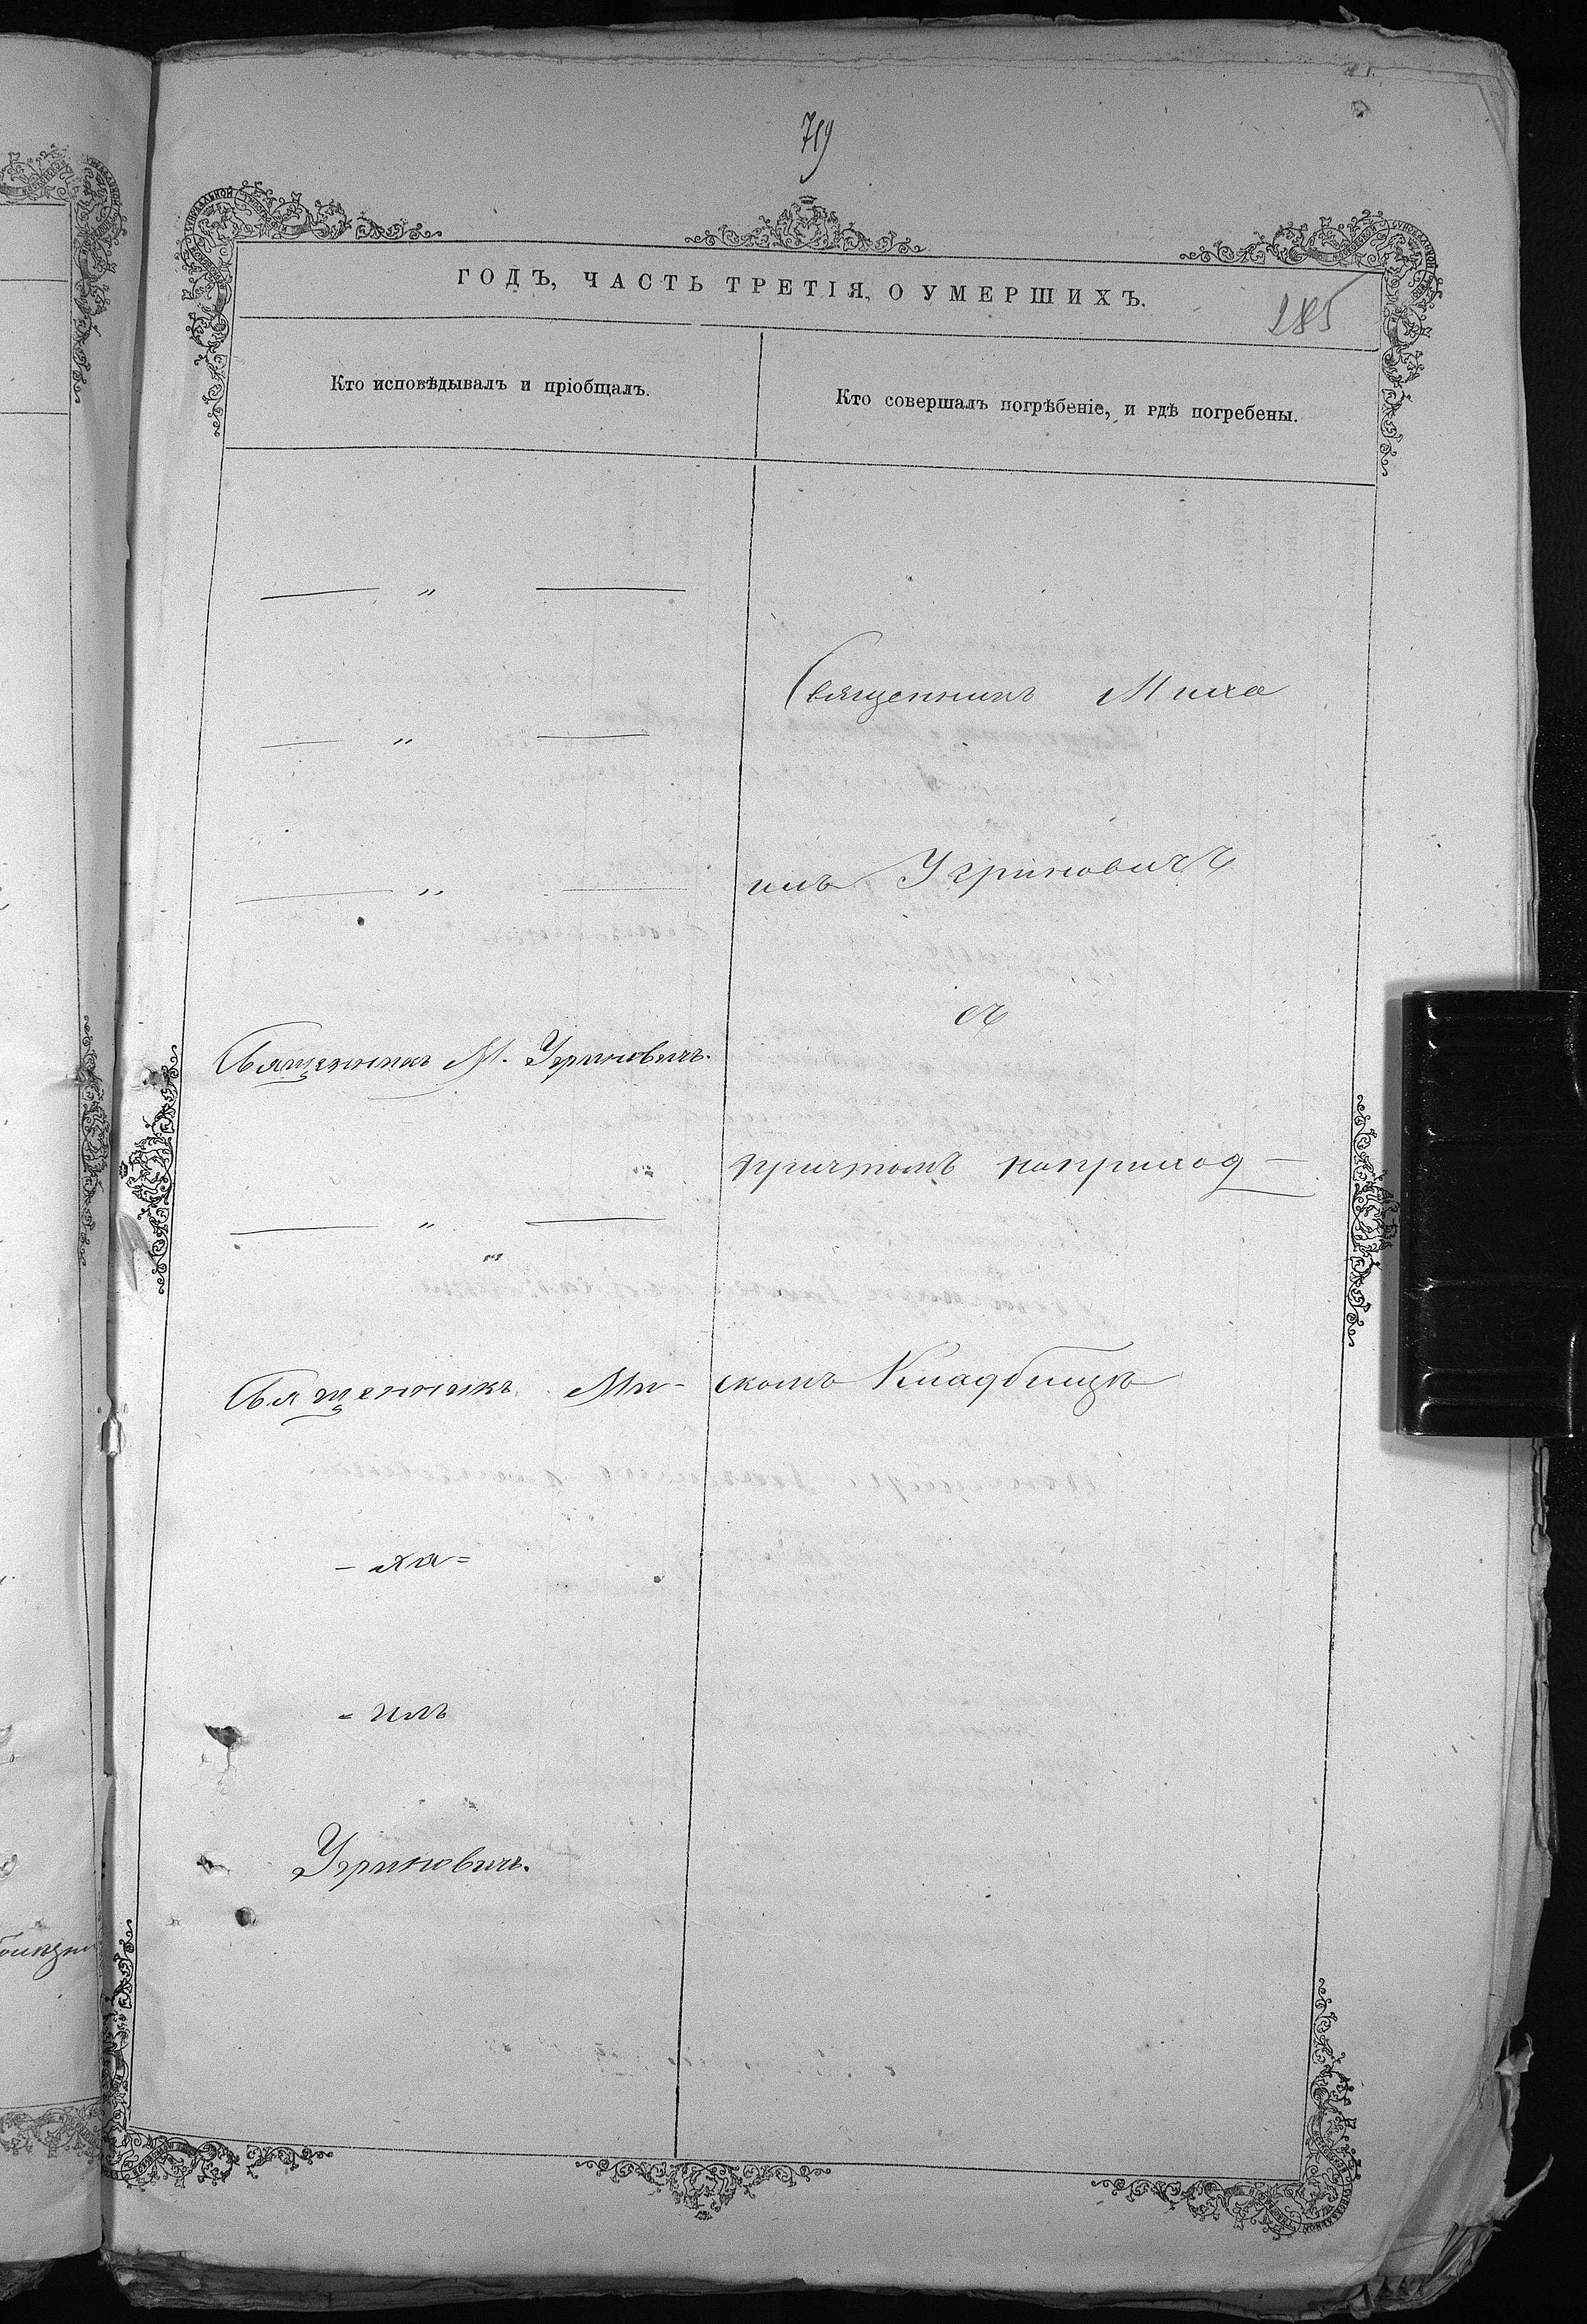 719
ГОДЪ, ЧАСТЬ ТРЕТІЯ, О УМЕРШИХЪ.
285
Кто исповѣдывалъ и пріобщалъ.
Кто совершалъ погрѣбеніе, и гдѣ погребены.
— „ —
— „ —
— „ —
Священникъ М. Угриновичъ.
— „ —
Священникъ Ми-
- ха =
= илъ
Угриновичъ.
Священникъ Миха
илъ Угриновичъ
съ
причтомъ наприход-
скомъ Кладбищѣ